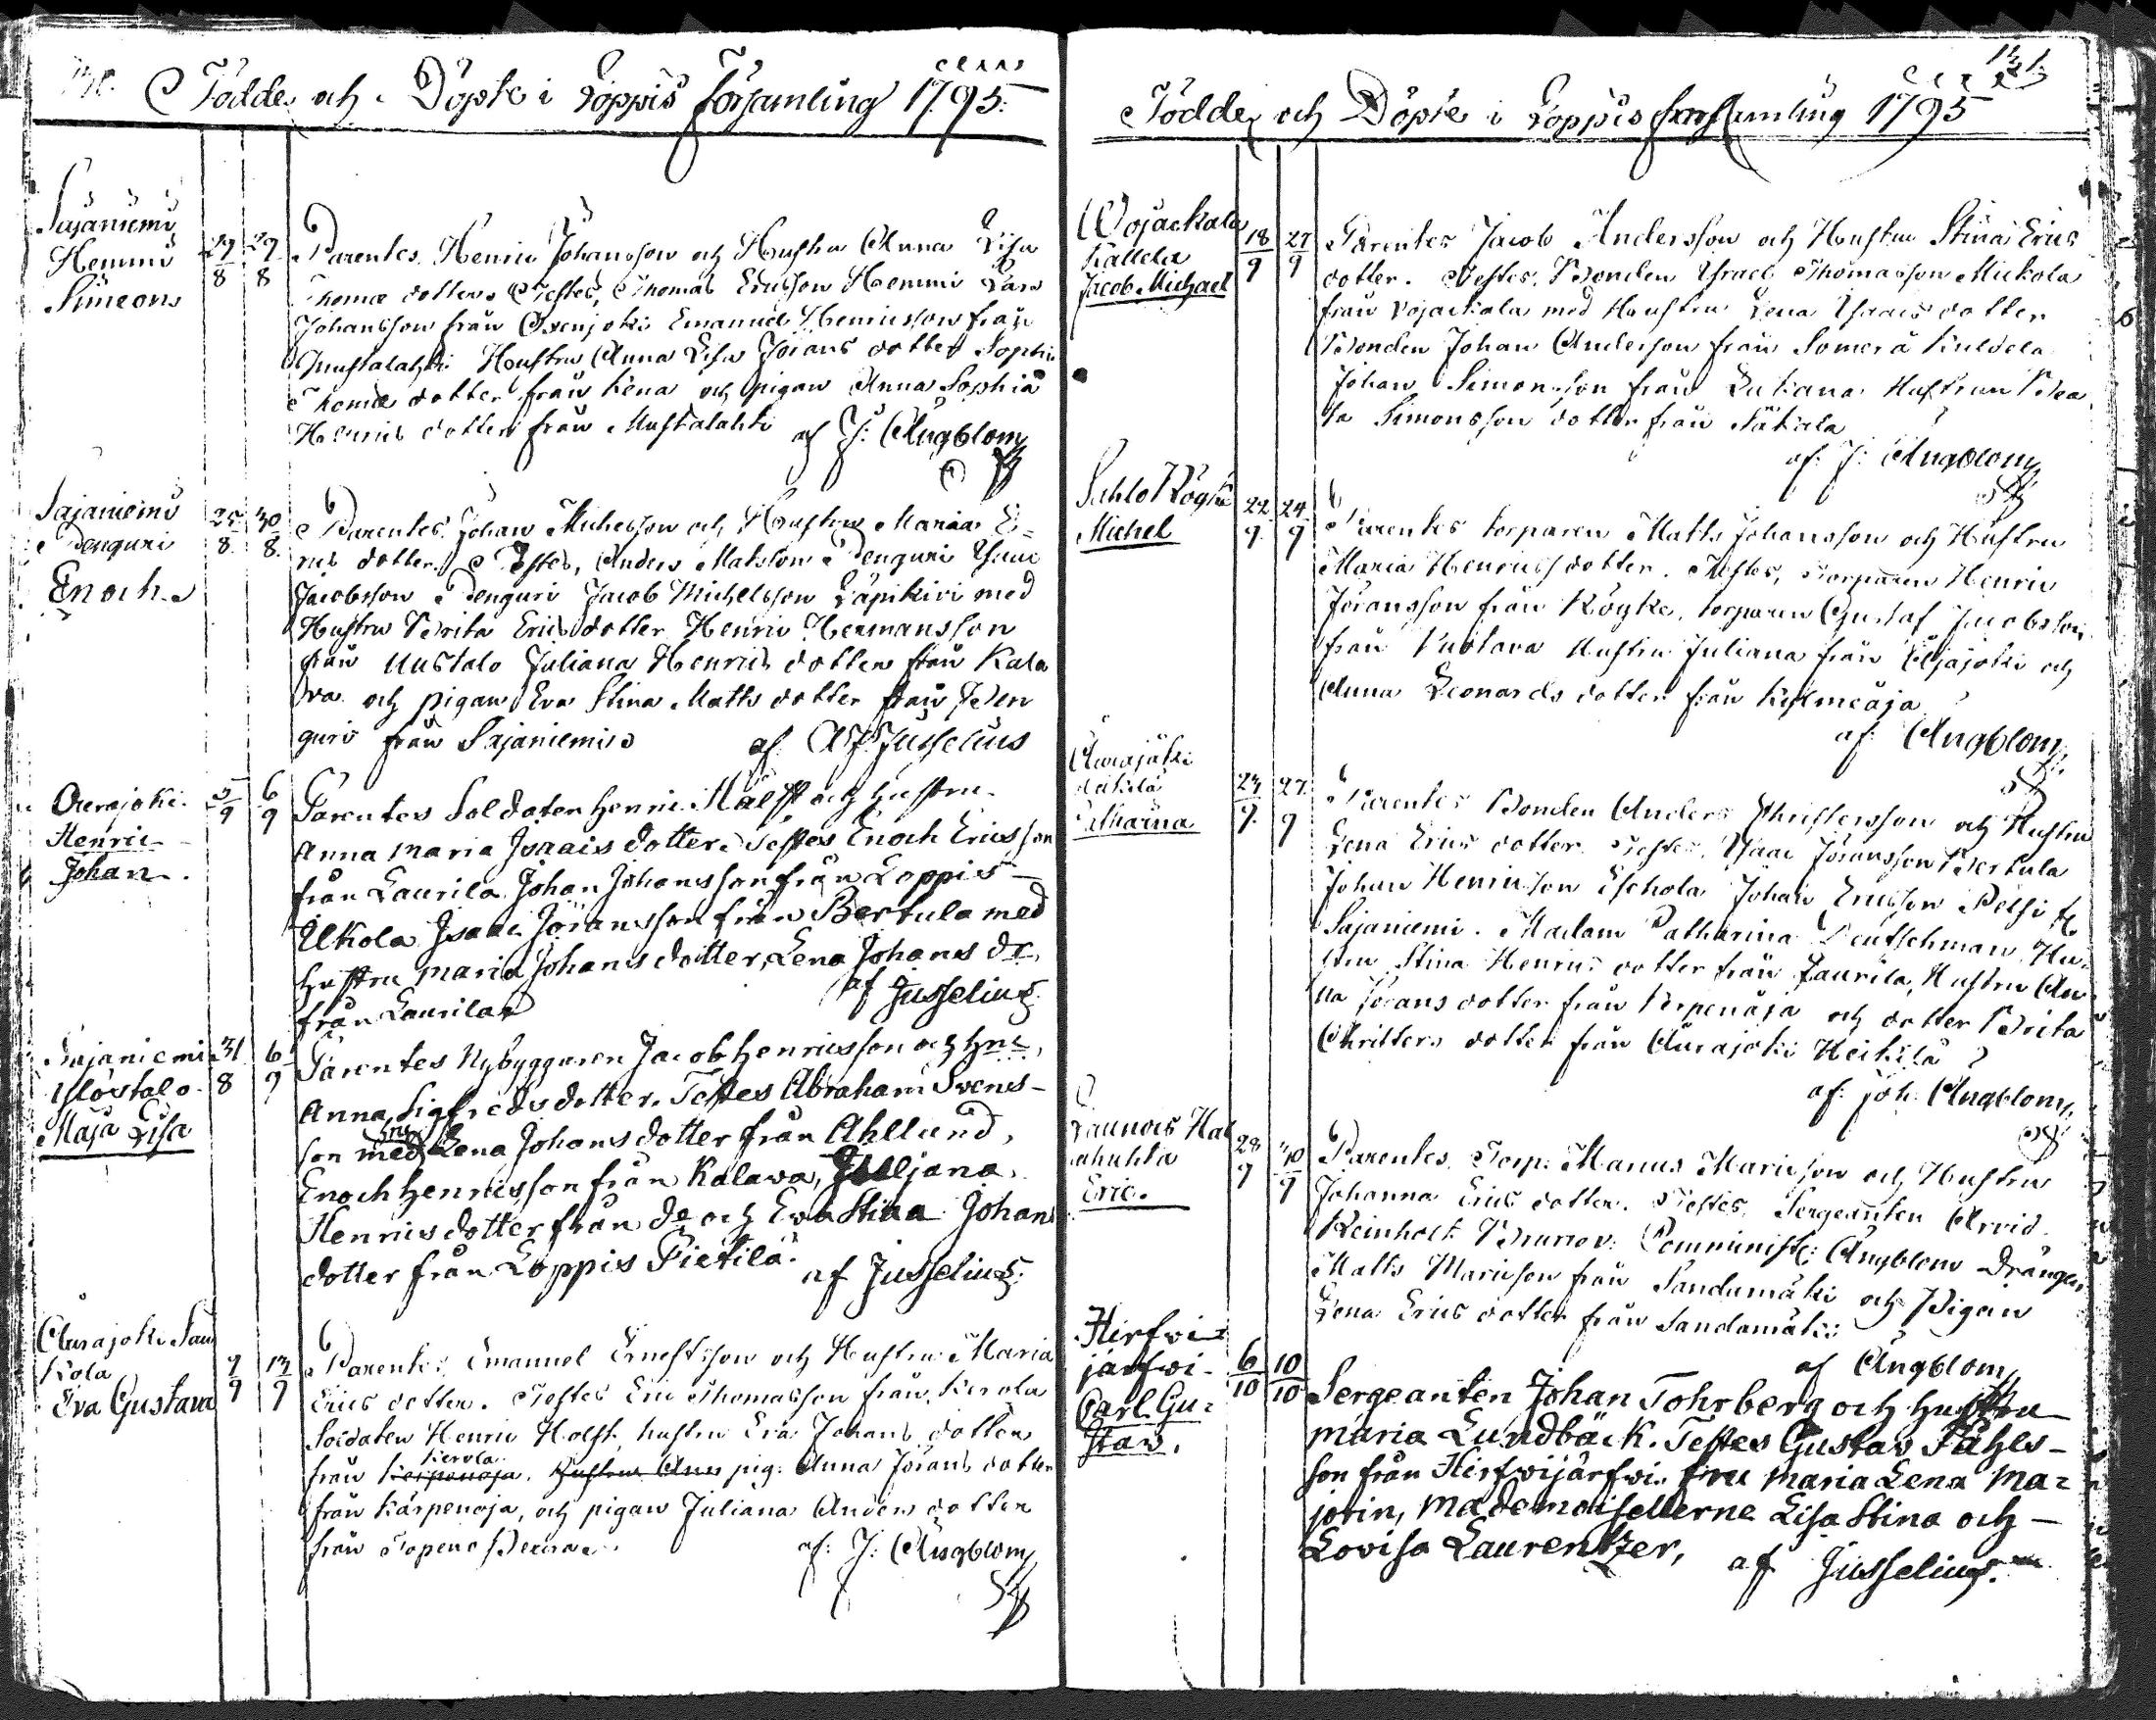 Födde och Döpte i Loppis Församling 1795.
Sajaniemi
Hemmi
Simeon
29 29
8 8
Parentes Henric Johansson och Hustru Anna Lisa
Thomæ dotter. Testes, Thomas Ericsson Hemmi Lars
Johansson från Emanuel Henricsson från
Mustalahti Hustru Anna Lisa Jörans dotter Sophia
Thomæ dotter från och pigan Anna Sophia
Henrics dotter från Mustalahti af J: Ångblom
Sajaniemi
Penguri
Enoch
25 30
8 8
Parentes Johan Michelsson och Hustru Maria E=
rics dotter. Testes, Anders Matsson Penguri Isaac
Jacobsson Penguri Jacob Michelsson Läpikivi med
Hustru Brita Erics dotter Henric Hermansson
från Uustalo Juliana Henrics dotter från Kala
va och pigan Eva Stina Matts dotter från Pen
guri från Sajaniemi af Jusselius
Ourajoki.
Henric
Johan.
5 6
9 9
Parentes Soldaten Henric Hålst och hustru
Anna Maria Isaacs dotter. Testes Enoch Ericsson
från Laurila Johan Johansson från Loppis
Ilkola Isaac Jöransson från Bertula med
hustru Maria Johans dotter, Lena Johans dr
från Laurila af Jusselius
Sajaniemi
Ylöstalo
Maja Lisa
31 6
8 9
Parentes Nybyggaren Jacob Henricsson och hne,
Anna Sigfredsdotter. Testes Abraham Svens-
son med hne Lena Johansdotter från Ahllund,
Enoch Henricsson från Kalava, Juljana
Henricsdotter från do och Eva Stina Johans
dotter från Loppis Pietilä. af Jusselius.
Ourajoki Sau
kola
Eva Gustava
9 13
9 9
Parentes, Emanuel Ernestsson och Hustru Maria
Erics dotter. Testes Eric Thomasson från Kerola
Soldaten Henric Holst, hustru Eva Johans dotter
från Kerpenoja Kerola. Hustru Anna pig: Anna Jörans dotter
från Kärpenoja, och pigan Juliana Anders dotter
från Topeno af: J: Ångblom
131.
Födde och Döpte i Loppis Församling 1795
Wojackala
Kallela
Jacob Michael
18 27
9 9
Parentes Jacob Andersson och Hustru Stina Erics
dotter. Testes, Bonden Israel Thomasson Mickola
från Vojackala med Hustru Lena Isaacs dotter
Bonden Johan Andersson från Somerå Kuldela
Johan Simonsson från Hustrun Bea
ta Simonsson dotter från
af: J: Ångblom
Sahlo Köykä
Michel
22 24
9 9
Parentes torparen Matts Johansson och Hustru
Maria Henrics dotter. Testes, Torparen Henric
Jöransson från Köykä, torparen Gustaf Jacobsson
från Hustru Juliana från och
Anna Leonards dotter från
af: Ångblom
Ourajoki
Heikilä
Catharina
23 27
9 9
Parentes Bonden Anders Christersson och Hustru
Lena Erics dotter. Testes, Isaac Jöransson Bertula
Johan Henricsson Eschola Johan Ericsson Pelsi fr
Sajaniemi. Madam Catharina Deutschman Hu
stru Stina Henrics dotter från Laurila, Hustru An
na Jörans dotter från Kerpenoja och dotter Brita
Christers dotter från Ourajoki Heikilä
af: Joh: Ångblom
Launois Hal
Eric.
28 30
9 9
Parentes, Torp: Manus Maricsson och Hustru
Johanna Erics dotter. Testes, Sergeanten Arvid
Reinholt Brunov: Comminist: Ångblom Drängen
Matts Maricsson från Sandumäki och Pigan
Lena Erics dotter från Sandamäki
af Ångblom
Hirfwi-
järfwi-
Carl Gu-
stav.
6 10
10 10
Sergeanten Johan Tohrberg och hustru
Maria Lundbäck. Testes Gustav Påhls-
son från Hirfwijärfwi. fru Maria Lena Ma-
jorin, Mademoisellerne Lisa Stina och
Lovisa Laurentzer, af Jusselius.